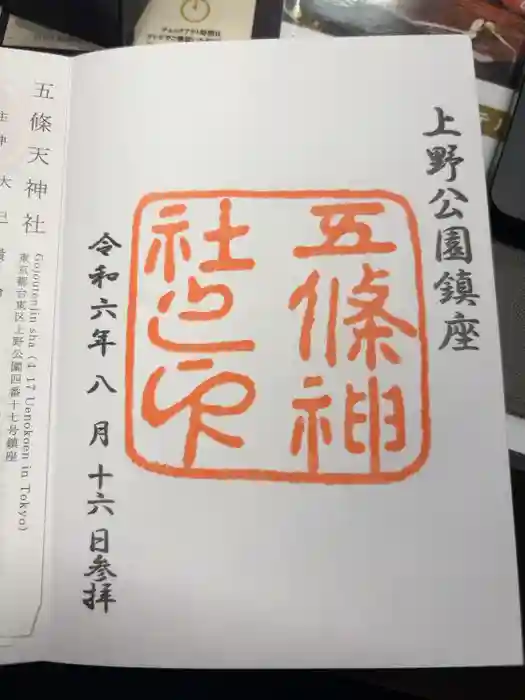 上野公園鎮座
五條神
社之印
令和六年八月十六日参拝
五條天神社
Gojoutenjin sha (4-17 Uenokoen in Tokyo)
東京都台東区上野公園四番十七号鎮座